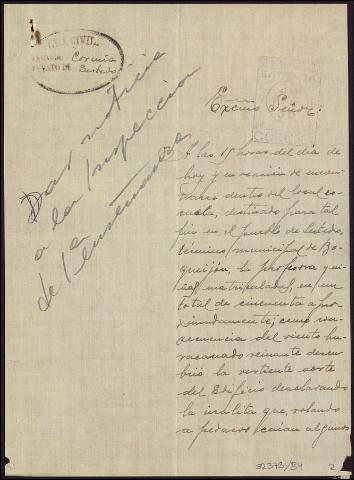 GUARDIA CIVIL
Coruña
PUESTO DE Lestedo
Dar noticia
a la Inspección
de 1ª enseñanza
Excmo Señor:
A las 15 horas del día de
hoy y en ocasión de encon-
trarse dentro del local es-
cuela, destinado para tal
fin en el pueblo de Lestedo,
término municipal de Bo-
queijón, la profesora y
matriculadas, en un
total de cincuenta apro-
ximadamente; como con-
secuencia del viento hu-
racanado reinante descu-
brió la vertiente norte
del Edificio desclavando
la uralita que, volando
a pedazos caían algunos
32373/84
2